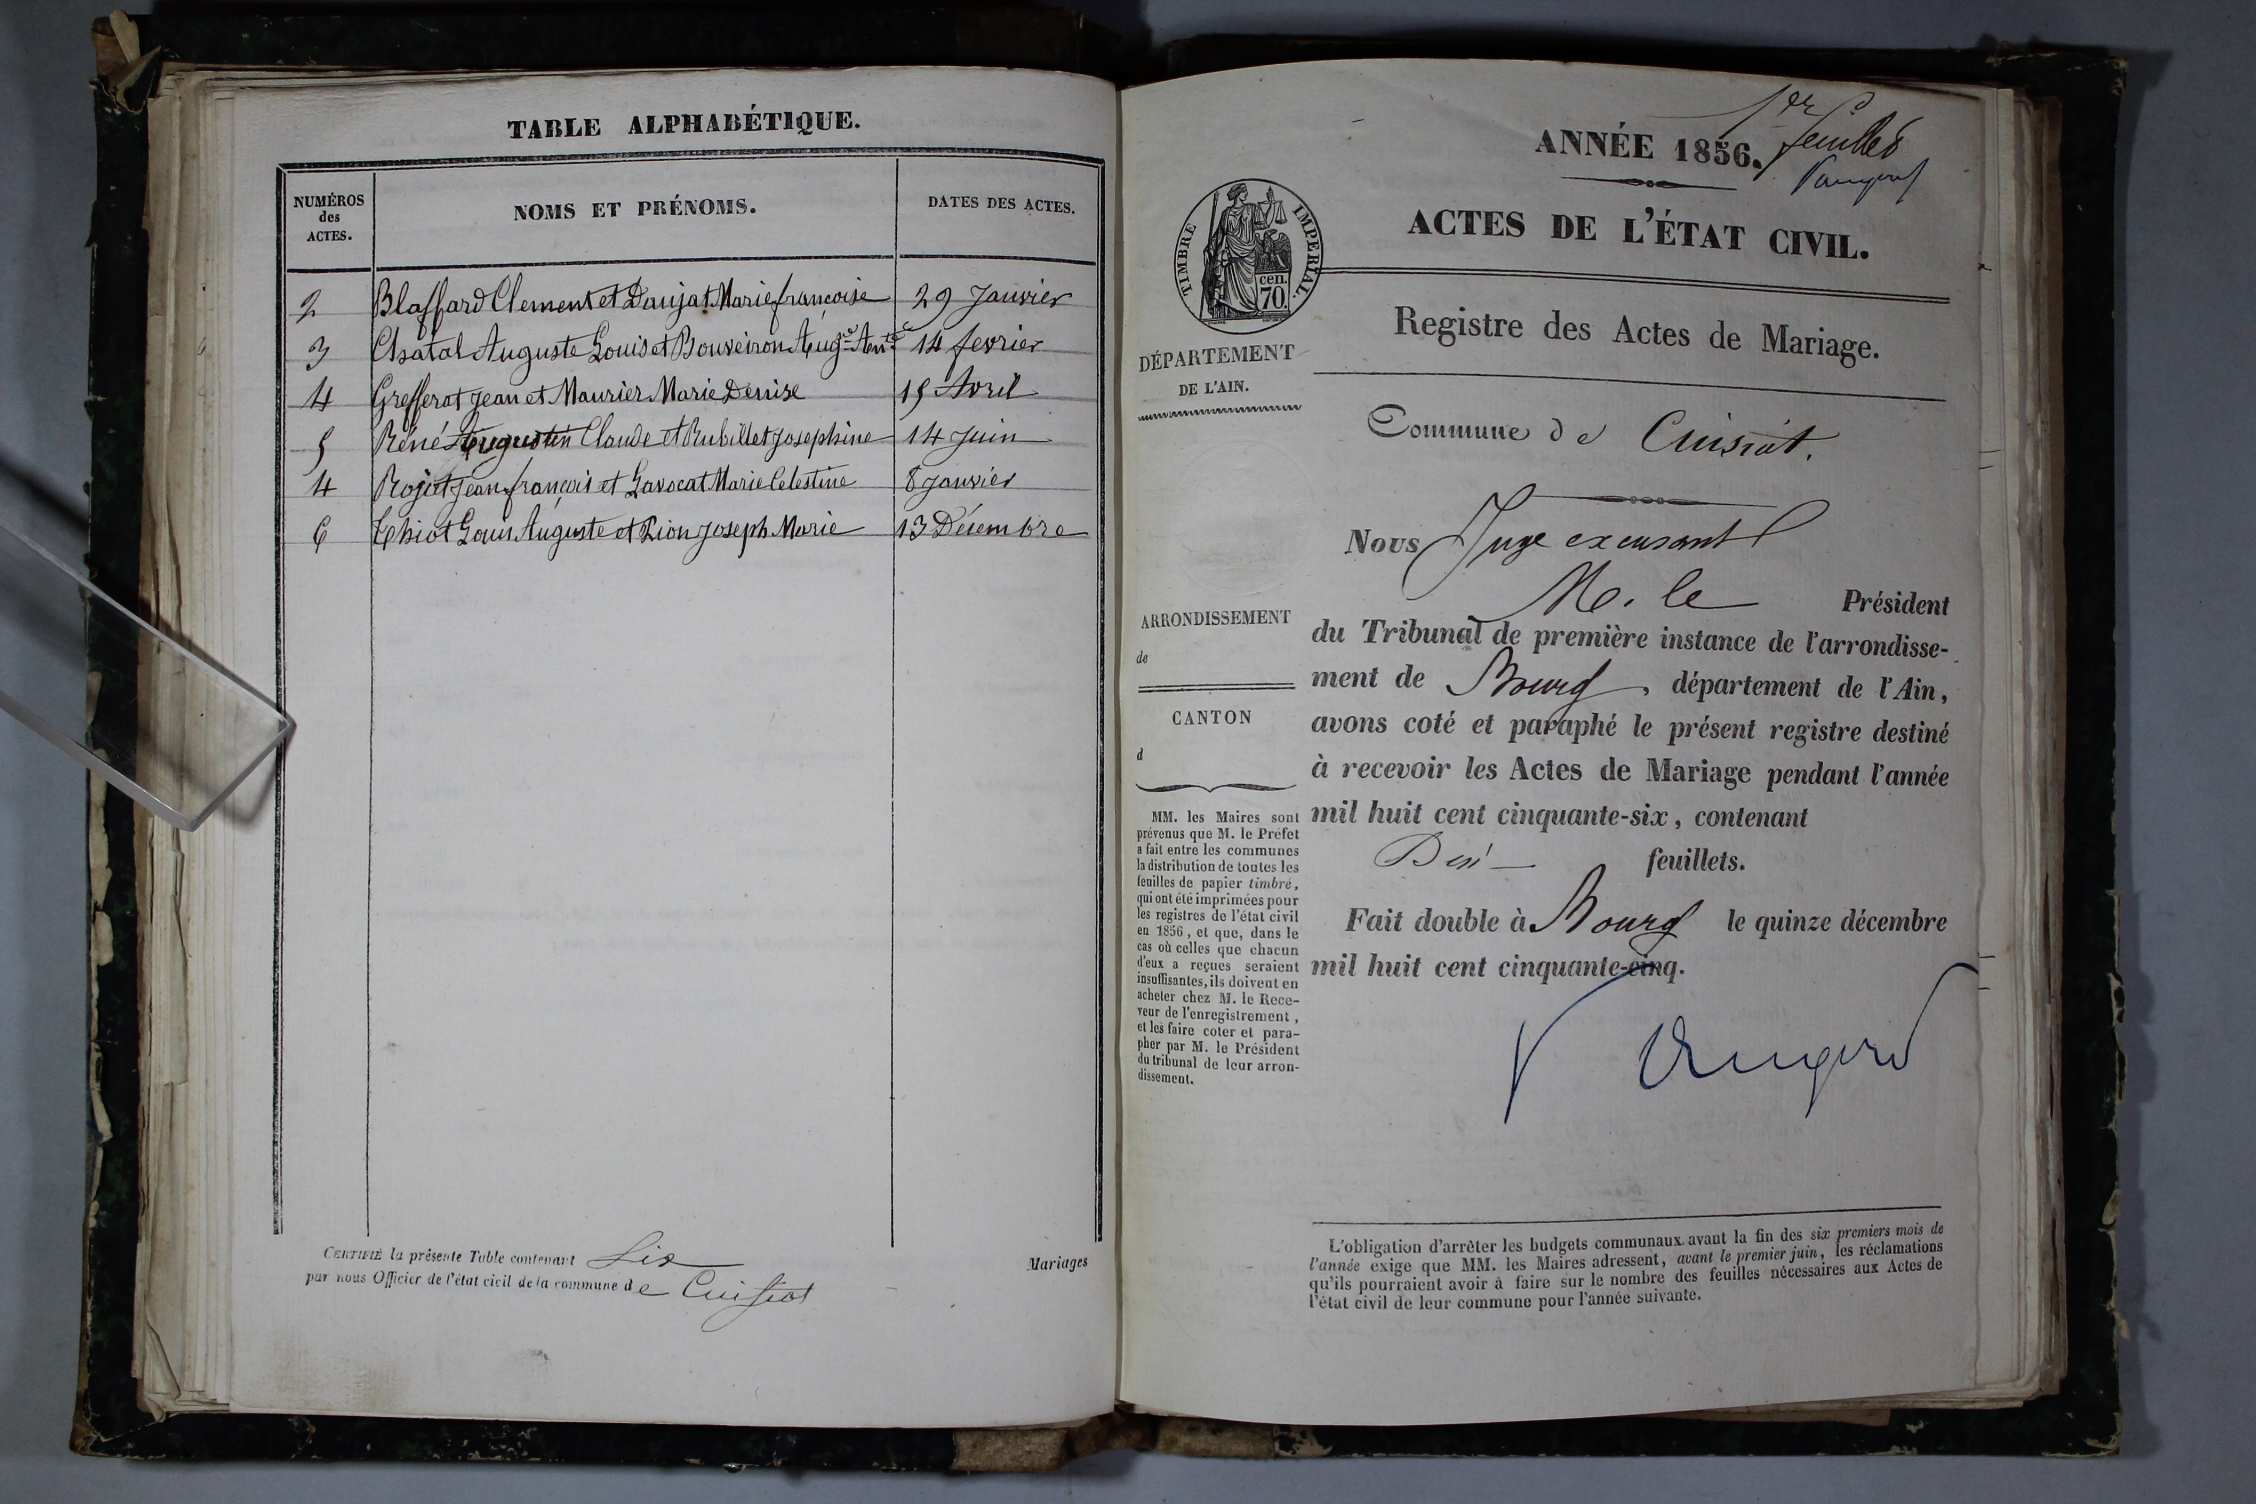 TABLE ALPHABÉTIQUE.
NUMÉROS des ACTES.
NOMS ET PRÉNOMS.
DATES DES ACTES.
2 Blaffard Clement et Daujat Marie françoise 29 Janvier
3 Chatal Auguste Louis et Bouveiron 14 fevrier
4 Grefferat Jean et Maurier Marie Denise 15 Avril
5 Réné Augustin Claude et Rubillet Josephine 14 Juin
4 Rojat Jean françois et Lavocat Marie Celestine 8 Janvier
6 Thiot Louis Auguste et Pion Joseph Marie 13 Décembre
CERTIFIÉ la présente Table contenant Six Mariages
par nous Officier de l'état civil de la commune de Cuisiat
1er feuillet
ANNÉE 1856.
ACTES DE L'ÉTAT CIVIL.
TIMBRE IMPERIAL.
cen.
70.
Registre des Actes de Mariage.
DÉPARTEMENT
DE L'AIN.
Commune de Cuisiat.
Nous Juge excusant
M. le Président
ARRONDISSEMENT
de
CANTON
d
du Tribunal de première instance de l'arrondisse-
ment de Bourg, département de l'Ain,
avons coté et paraphé le présent registre destiné
à recevoir les Actes de Mariage pendant l'année
mil huit cent cinquante-six, contenant
feuillets.
Fait double à Bourg le quinze décembre
mil huit cent cinquante-cinq.
MM. les Maires sont
prévenus que M. le Préfet
a fait entre les communes
la distribution de toutes les
feuilles de papier timbré,
qui ont été imprimées pour
les registres de l'état civil
en 1856, et que, dans le
cas où celles que chacun
d'eux a reçues seraient
insuffisantes, ils doivent en
acheter chez M. le Rece-
veur de l'enregistrement,
et les faire coter et para-
pher par M. le Président
du tribunal de leur arron-
dissement.
L'obligation d'arrêter les budgets communaux avant la fin des six premiers mois de
l'année exige que MM. les Maires adressent, avant le premier juin, les réclamations
qu'ils pourraient avoir à faire sur le nombre des feuilles nécessaires aux Actes de
l'état civil de leur commune pour l'année suivante.